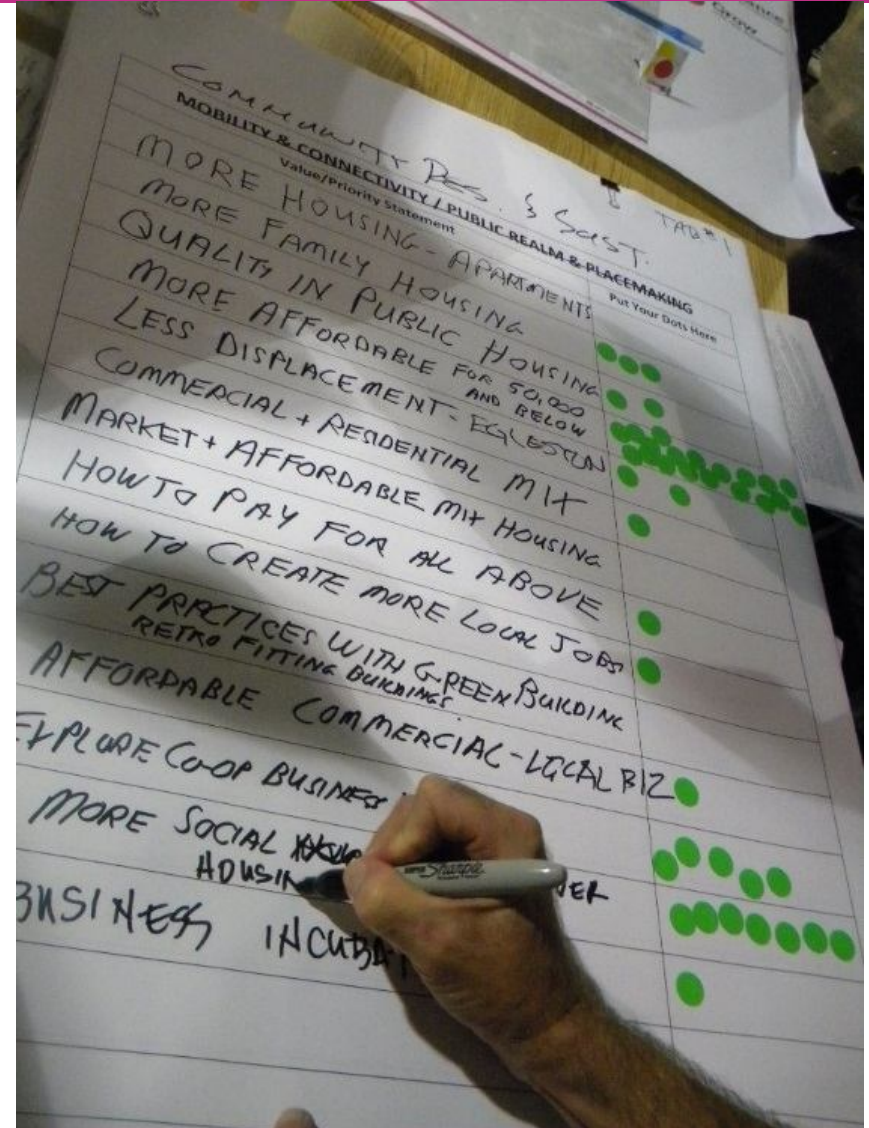 Grow
COMMUNITY RES. & SUST. TAB #1
MOBILITY & CONNECTIVITY / PUBLIC REALM & PLACEMAKING
Value/Priority Statement
Put Your Dots Here
MORE HOUSING - APARTMENTS
MORE FAMILY HOUSING
QUALITY IN PUBLIC HOUSING
MORE AFFORDABLE FOR 50,000
AND BELOW
LESS DISPLACEMENT - EGLESTON
COMMERCIAL + RESIDENTIAL MIX
MARKET + AFFORDABLE MIX HOUSING
HOW TO PAY FOR ALL ABOVE
HOW TO CREATE MORE LOCAL JOBS
BEST PRACTICES WITH GREEN BUILDING
RETRO FITTING BUILDINGS
AFFORDABLE COMMERCIAL - LOCAL BIZ
EXPLORE CO-OP BUSINESS
MORE SOCIAL
HOUSIN
Sharpie
BUSINESS INCUBAT